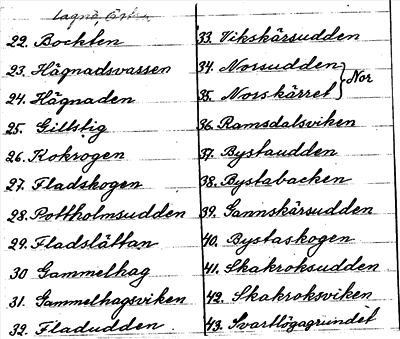 Lagnö
22. Bockten
23. Hägnadsvassen
24. Hägnaden
25. Gillstig
26. Kokrogen
27. Fladskogen
28. Pottholmsudden
29. Fladslåttan
30 Gammelhag
31. Gammelhagsviken
32. Fladudden
33. Vikskärsudden
34. Norsudden
35. Norskärret
Nor
36. Ramsdalsviken
37. Bystaudden
38. Bystabacken
39. Gannskärsudden
40. Bystaskogen
41. Skakroksudden
42. Skakroksviken
43. Svartlögagrundet